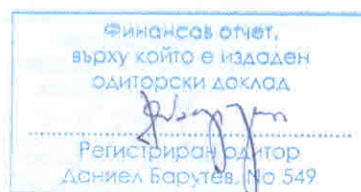 Финансов отчет,
върху който е издаден
одиторски доклад
Регистриран одитор
Даниел Барутев, No 549